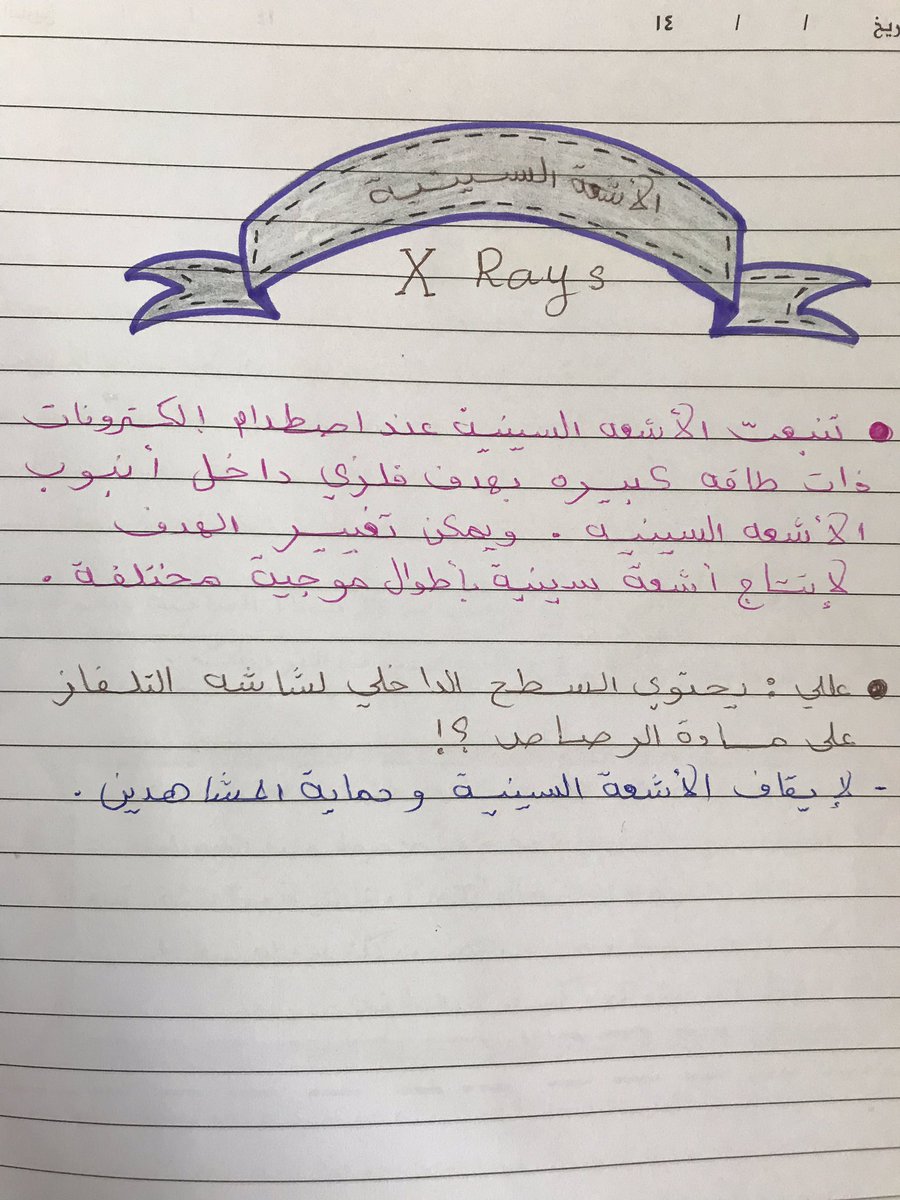 ريخ / / ١٤
الأشعة السينية
X Rays
● تنبعث الأشعه السينية عند اصطدام إلكترونات
ذات طاقه كبيره بهدف فلزي داخل أنبوب
الأشعه السينيه . ويمكن تغيير الهدف
لإنتاج أشعة سينية بأطوال موجية مختلفة .
● عللي : يحتوي السطح الداخلي لشاشه التلفاز
على مادة الرصاص ؟!
- لإيقاف الأشعة السينية وحماية المشاهدين .